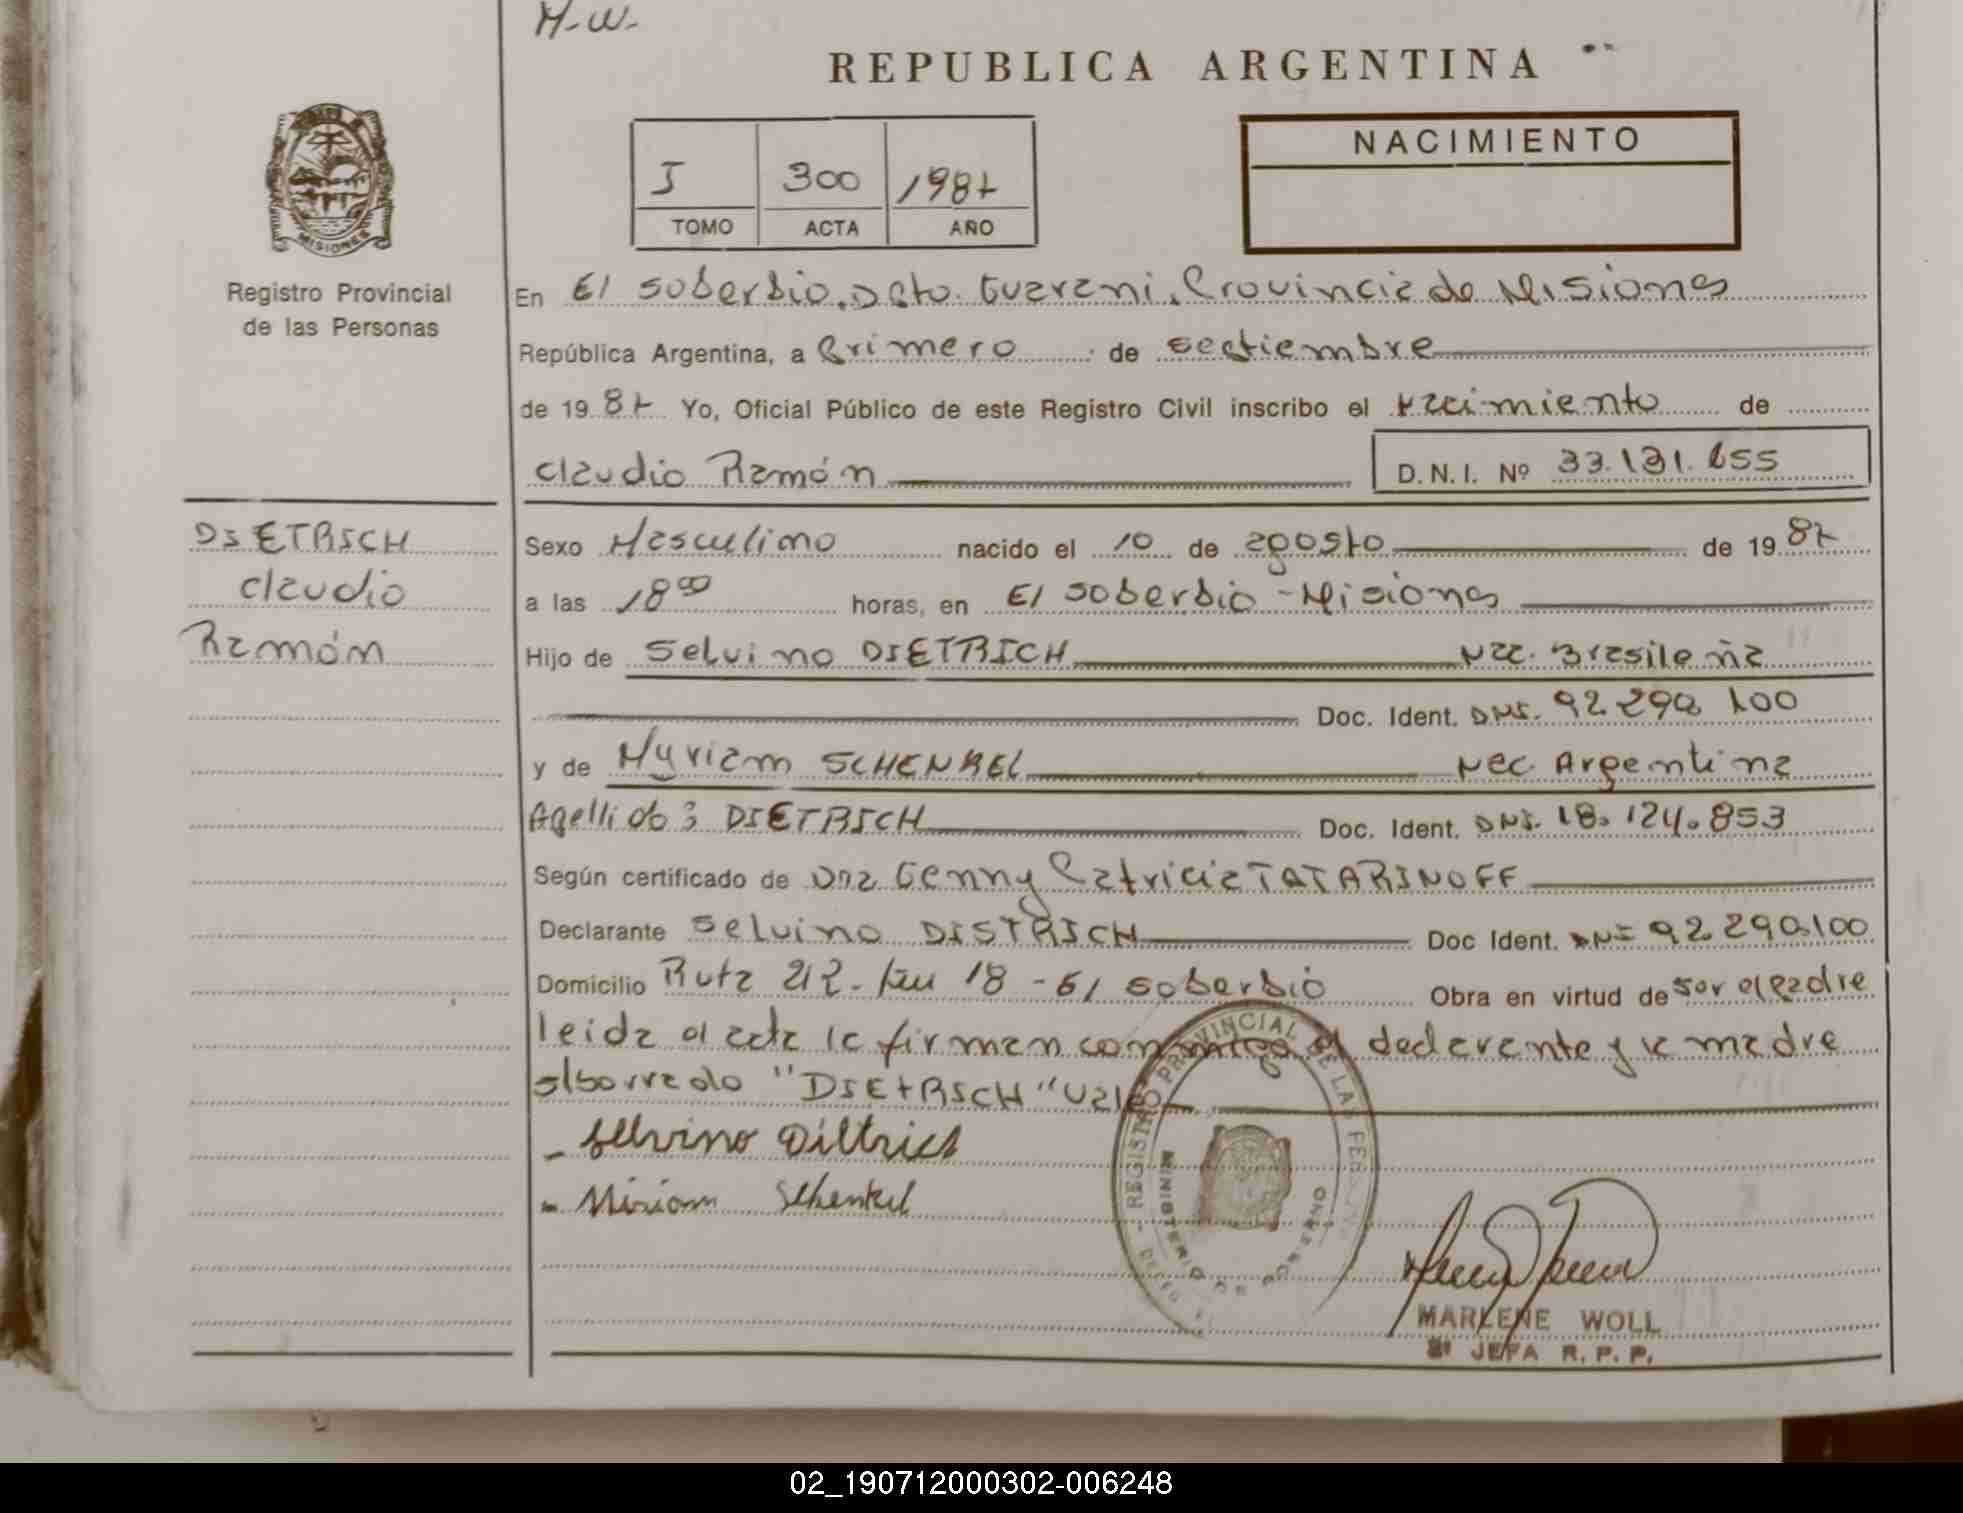 H-W-
REPUBLICA ARGENTINA
I 300 1987
TOMO ACTA AÑO
NACIMIENTO
MISIONES
Registro Provincial
de las Personas
En El Soberbio, Dpto. Guarani, Provincia de Misiones
República Argentina, a Primero de septiembre
de 1987 Yo, Oficial Público de este Registro Civil inscribo el nacimiento de
Claudio Ramón D.N.I. Nº 33.131.655
DIETRICH
Claudio
Ramón
Sexo Masculino nacido el 10 de agosto de 1987
a las 18 00 horas, en El Soberbio - Misiones
Hijo de Selvino DIETRICH Nac. Brasileña
Doc. Ident. DNI. 92.290.100
y de Myriam SCHENKEL Nac. Argentina
Apellido: DIETRICH Doc. Ident. DNI. 18.124.853
Según certificado de Dra Genny Patricia TATARINOFF
Declarante Selvino DISTRICH Doc Ident. DNI 92.290.100
Domicilio Ruta 212 - km 18 - El Soberbio Obra en virtud de ser el padre
leida el acta la firman conmigo el declarante y la madre
slborrado "DIEtRICH" Vale
- Selvino Diettrich
- Miriam Schenkel
REGISTRO PROVINCIAL DE LAS PERSONAS
MINISTERIO DE GOBIERNO
MARLENE WOLL
JEFA R. P. P.
02_190712000302-006248